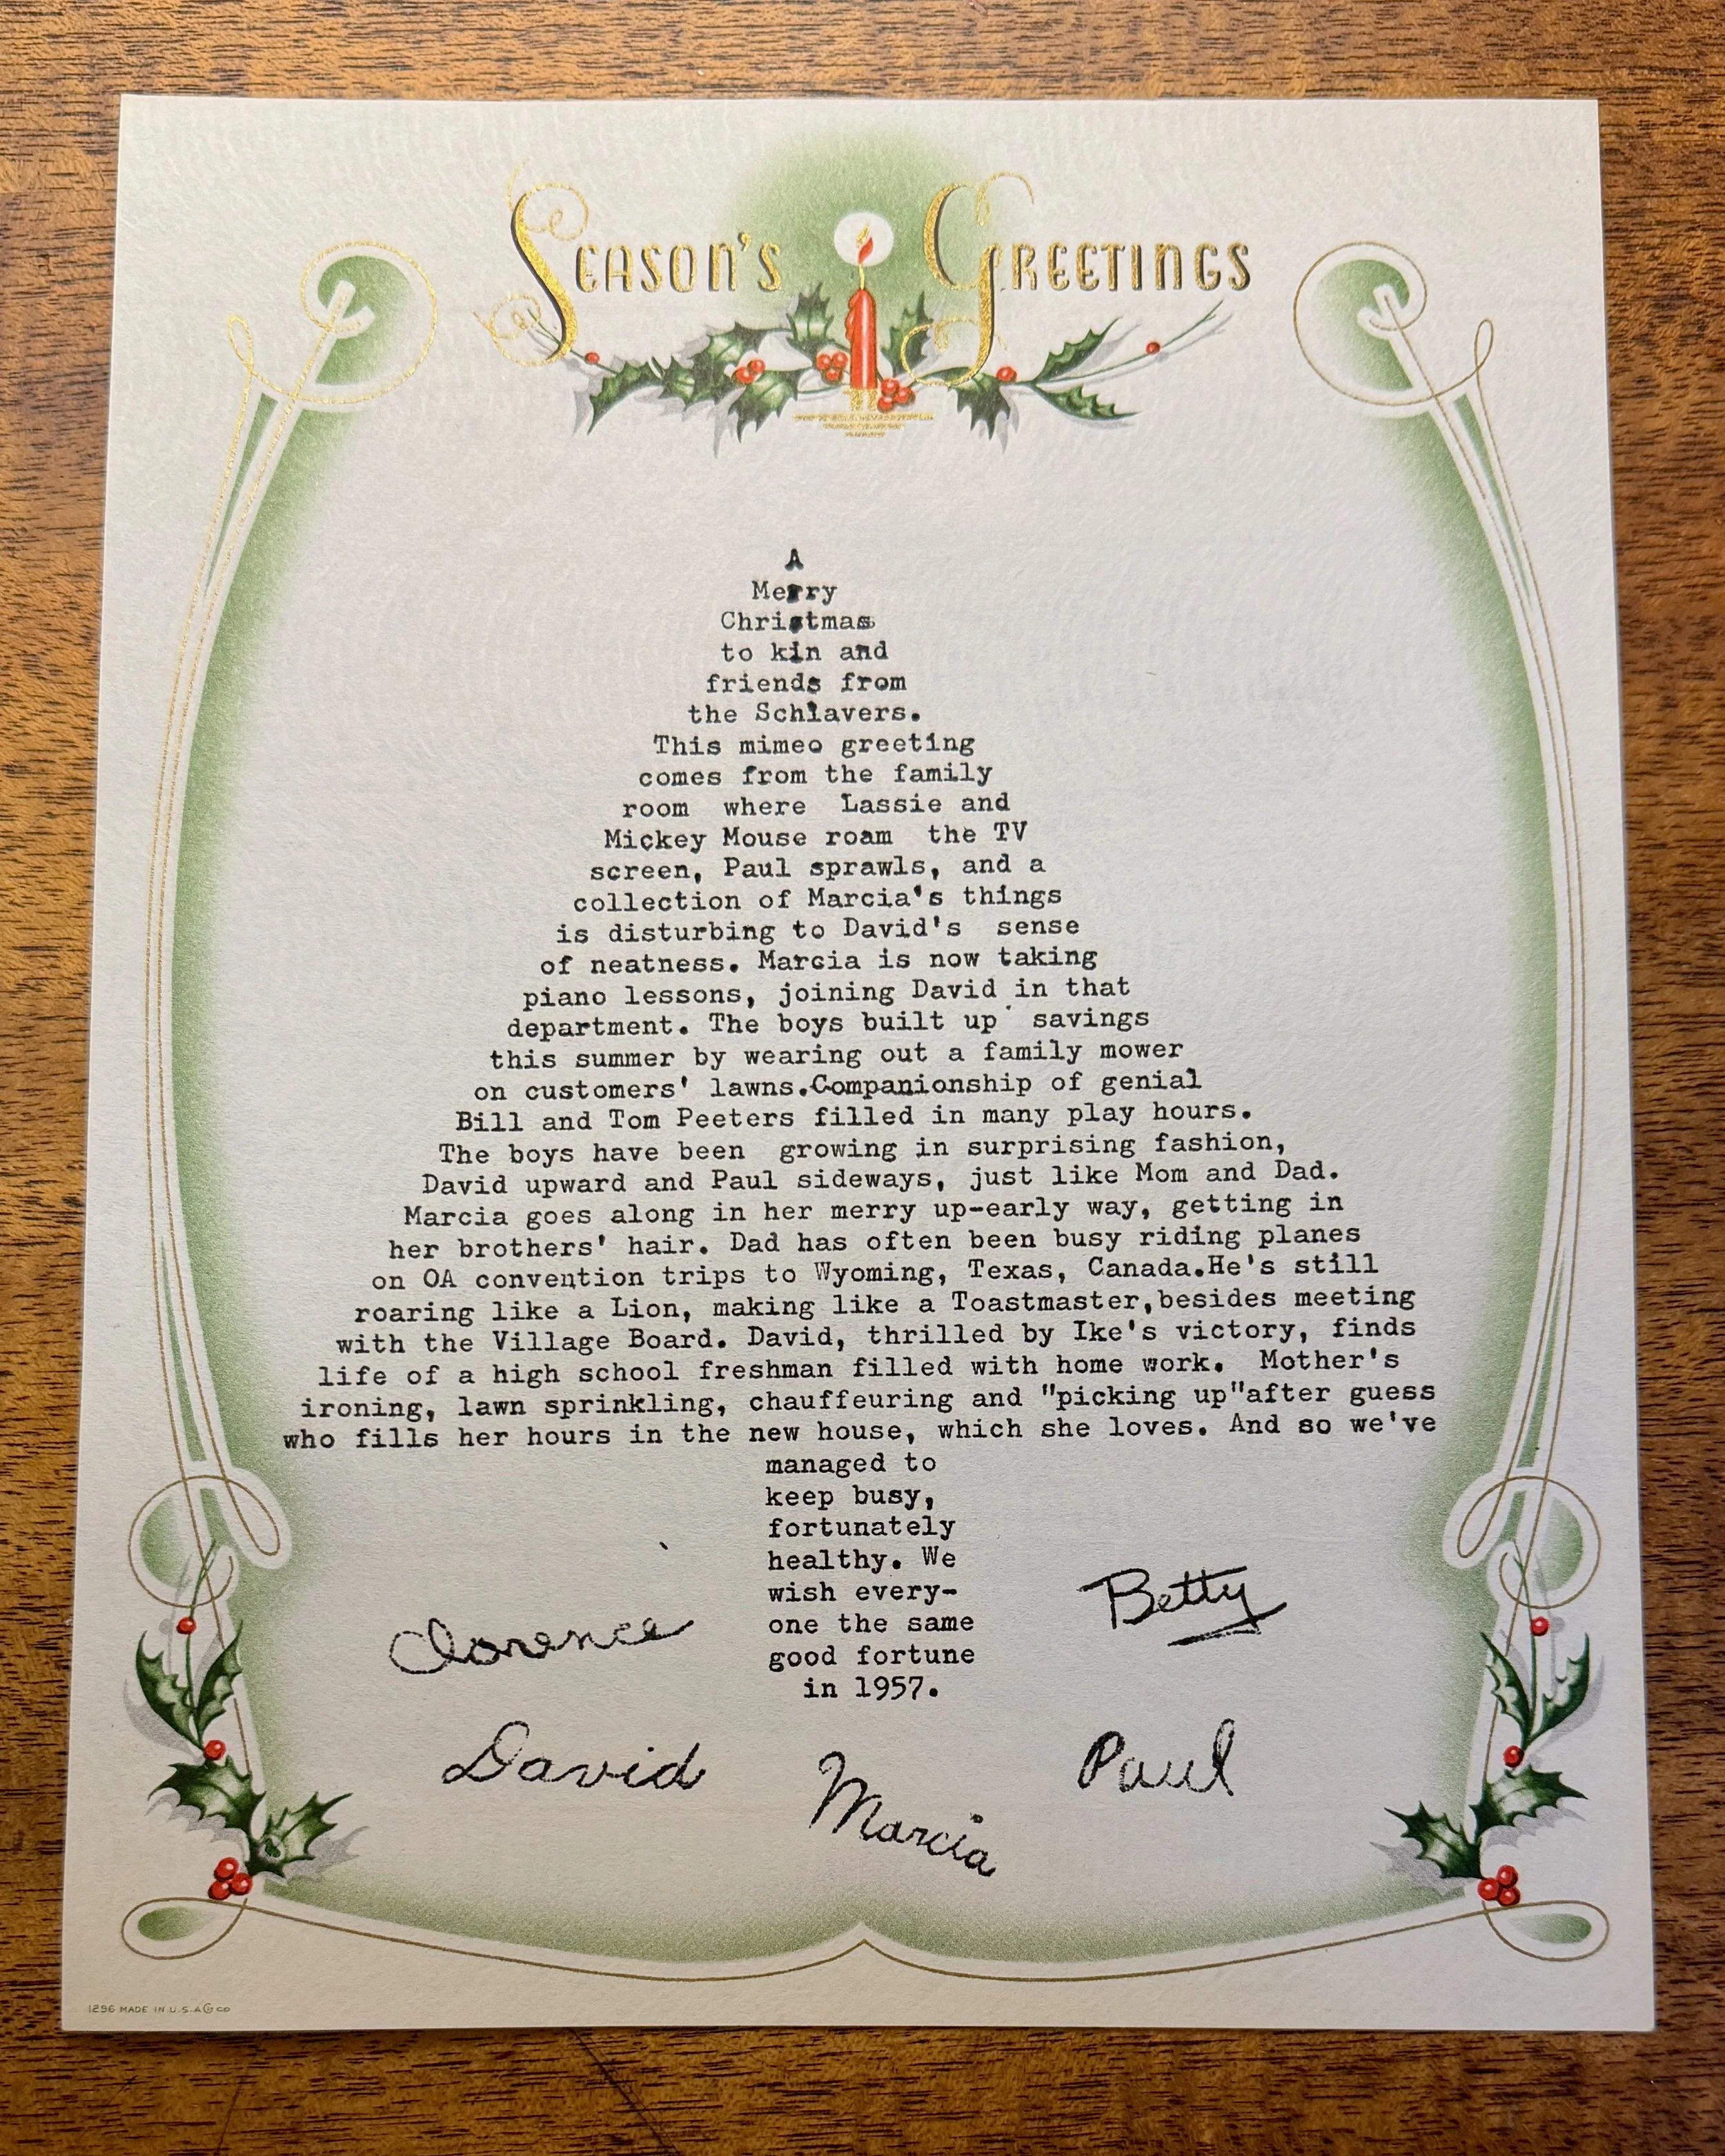 SEASON'S GREETINGS
A
Merry
Christmas
to kin and
friends from
the Schlavers.
This mimeo greeting
comes from the family
room where Lassie and
Mickey Mouse roam the TV
screen, Paul sprawls, and a
collection of Marcia's things
is disturbing to David's sense
of neatness. Marcia is now taking
piano lessons, joining David in that
department. The boys built up savings
this summer by wearing out a family mower
on customers' lawns.Companionship of genial
Bill and Tom Peeters filled in many play hours.
The boys have been growing in surprising fashion,
David upward and Paul sideways, just like Mom and Dad.
Marcia goes along in her merry up-early way, getting in
her brothers' hair. Dad has often been busy riding planes
on OA convention trips to Wyoming, Texas, Canada.He's still
roaring like a Lion, making like a Toastmaster,besides meeting
with the Village Board. David, thrilled by Ike's victory, finds
life of a high school freshman filled with home work. Mother's
ironing, lawn sprinkling, chauffeuring and "picking up"after guess
who fills her hours in the new house, which she loves. And so we've
managed to
keep busy,
fortunately
healthy. We
wish every-
one the same
good fortune
in 1957.
Clarence
Betty
David
Marcia
Paul
1296 MADE IN U.S.A. G CO